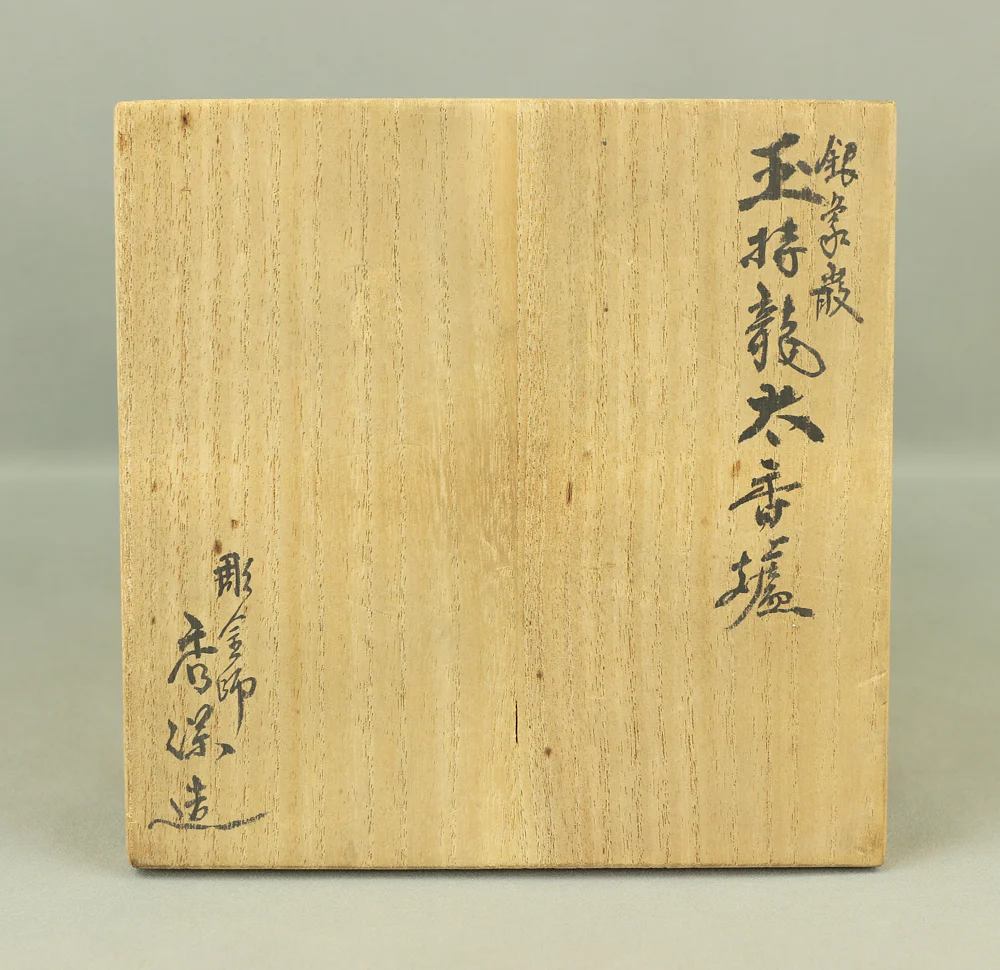 銀象嵌
玉持龍太香爐
彫金師
秀渓造